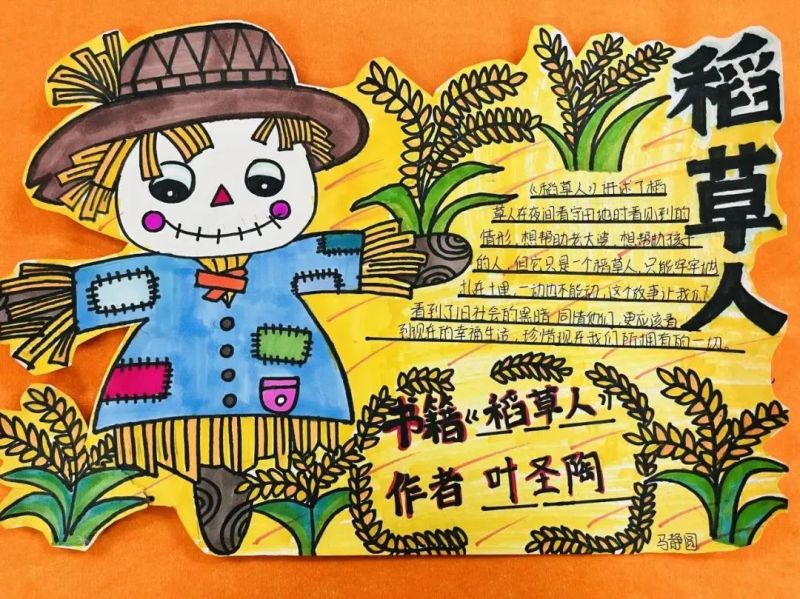 稻草人
《稻草人》讲述了稻
草人在夜间看守田地时看见到的
情形,想帮助老大婆,想帮助孩子
的人,但它只是一个稻草人,只能牢牢地
扎在土里,一动也不能动,这个故事让我们
看到了旧社会的黑暗,同情他们,更应该看
到现在的幸福生活,珍惜现在我们所拥有的一切。
书籍《稻草人》
作者 叶圣陶
马静圆